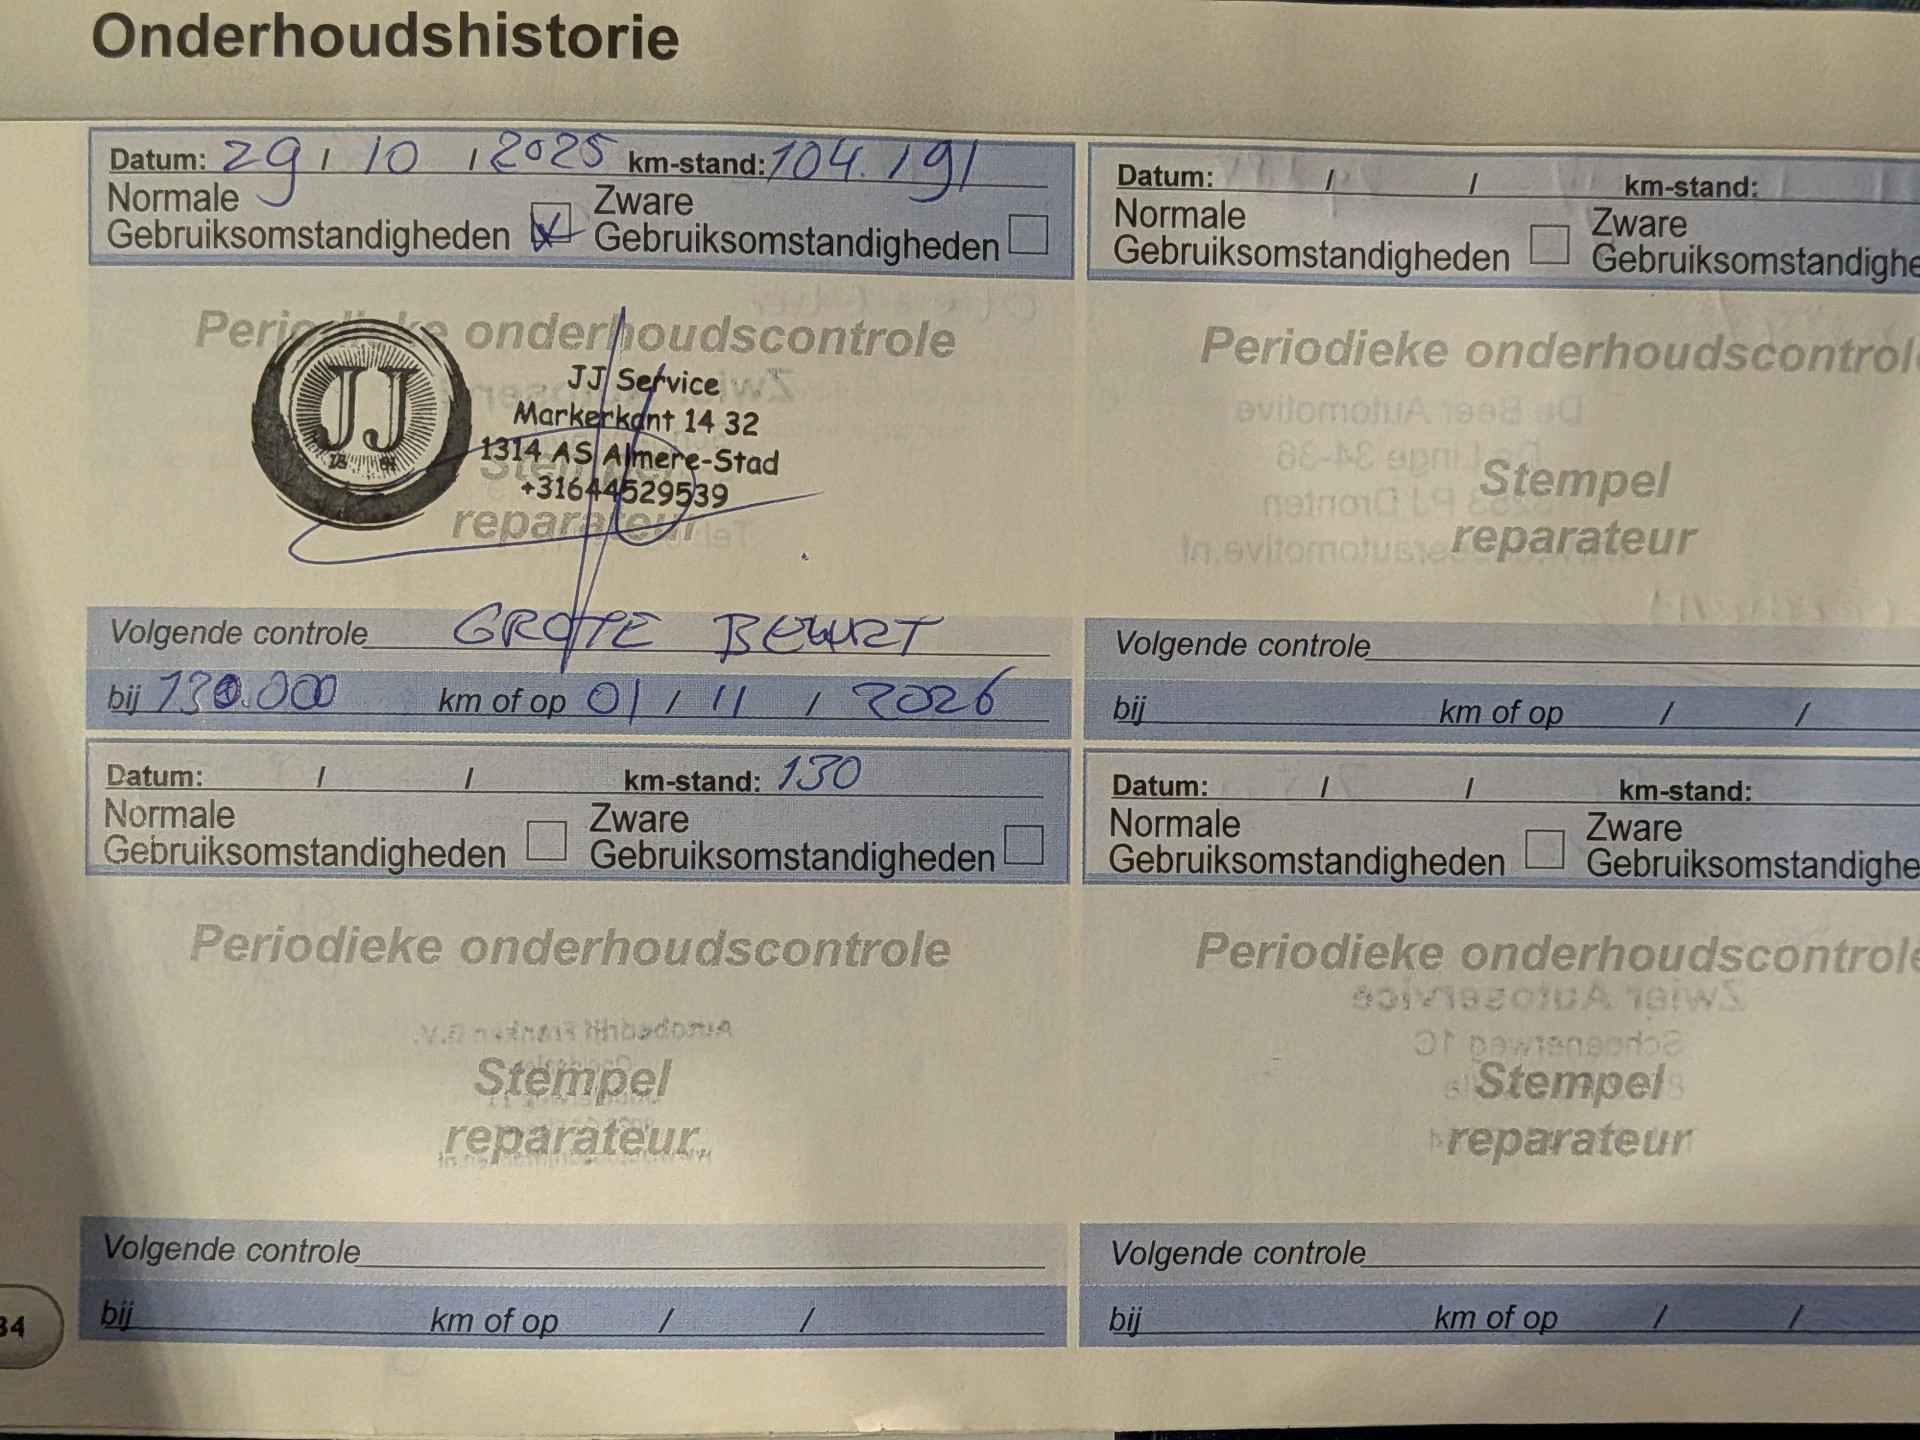 Onderhoudshistorie
Datum: 29 / 10 / 2025 km-stand: 104.191
Normale Gebruiksomstandigheden Zware Gebruiksomstandigheden
Periodieke onderhoudscontrole
JJ
JJ Service
Markerkant 14 32
1314 AS Almere-Stad
+31644529539
Stempel
reparateur
Volgende controle GROTE BEURT
bij 130.000 km of op 01 / 11 / 2026
Datum: / / km-stand:
Normale Gebruiksomstandigheden Zware Gebruiksomstandighe
Periodieke onderhoudscontrole
Stempel
reparateur
Volgende controle
bij km of op / /
Datum: / / km-stand: 130
Normale Gebruiksomstandigheden Zware Gebruiksomstandigheden
Periodieke onderhoudscontrole
Stempel
reparateur
Volgende controle
bij km of op / /
Datum: / / km-stand:
Normale Gebruiksomstandigheden Zware Gebruiksomstandighe
Periodieke onderhoudscontrole
Stempel
reparateur
Volgende controle
bij km of op / /
34